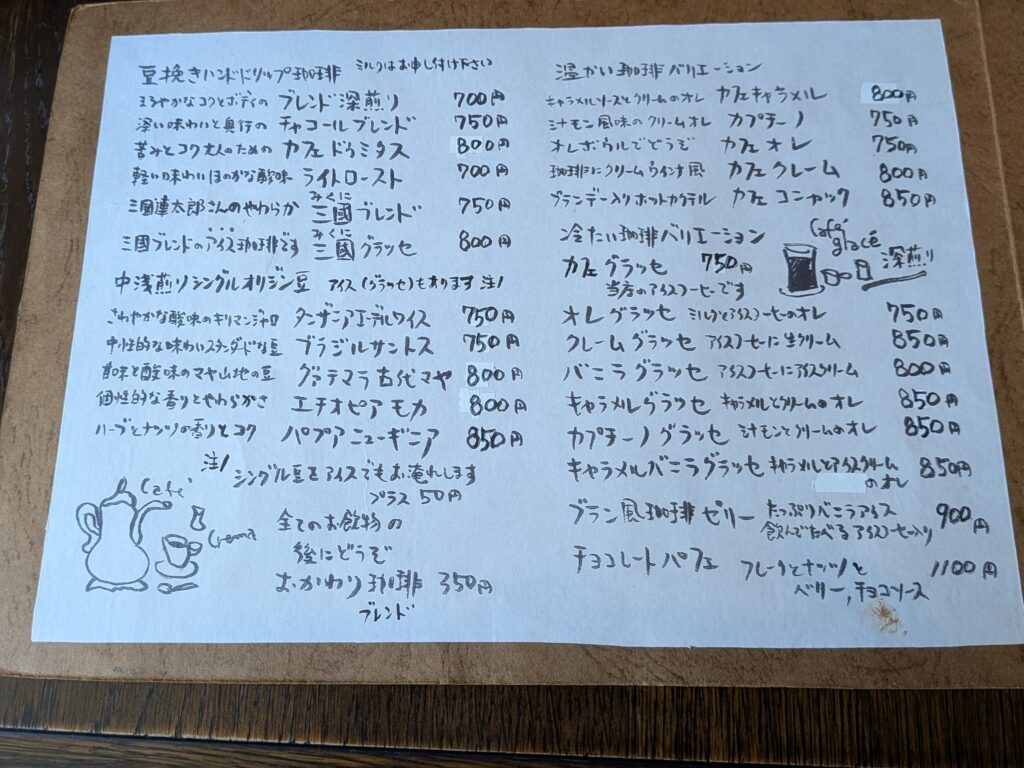 豆挽きハンドドリップ珈琲 ミルクはお申し付け下さい
まろやかなコクとボディの ブレンド深煎り 700円
深い味わいと奥行の チャコールブレンド 750円
苦みとコク大人のための カフェドゥミタス 800円
軽い味わいほのかな酸味 ライトロースト 700円
みくに
三國連太郎さんのやわらか 三國ブレンド 750円
みくに
三國ブレンドのアイス珈琲です 三國グラッセ 800円
中浅煎りシングルオリジン豆 アイス(グラッセ)もあります 注)
さわやかな酸味のキリマンジャロ タンザニアエーデルワイス 750円
中性的な味わいスタンダードな豆 ブラジルサントス 750円
甘味と酸味のマヤ山地の豆 グァテマラ古代マヤ 800円
個性的な香りとやわらかさ エチオピアモカ 800円
ハーブとナッツの香りとコク パプアニューギニア 850円
注)
シングル豆をアイスでもお淹れします
プラス 50円
Café
Crema
全てのお飲物の
後にどうぞ
おかわり珈琲 350円
ブレンド
温かい珈琲バリエーション
キャラメルソースとクリームのオレ カフェキャラメル 800円
シナモン風味のクリームオレ カプチーノ 750円
オレボウルでどうぞ カフェオレ 750円
珈琲にクリームウインナ風 カフェクレーム 800円
ブランデー入りホットカクテル カフェコニャック 850円
冷たい珈琲バリエーション
Café
glacé
深煎り
カフェグラッセ 750円
当店のアイスコーヒーです
オレグラッセ ミルクとアイスコーヒーのオレ 750円
クレームグラッセ アイスコーヒーに生クリーム 850円
バニラグラッセ アイスコーヒーにアイスクリーム 800円
キャラメルグラッセ キャラメルとクリームのオレ 850円
カプチーノグラッセ シナモンとクリームのオレ 850円
キャラメルバニラグラッセ キャラメルとアイスクリーム 850円
のオレ
ブラン風珈琲ゼリー たっぷりバニラアイス 900円
飲んでたべるアイスコーヒー入り
チョコレートパフェ フレークとナッツと 1100円
ベリー,チョコソース